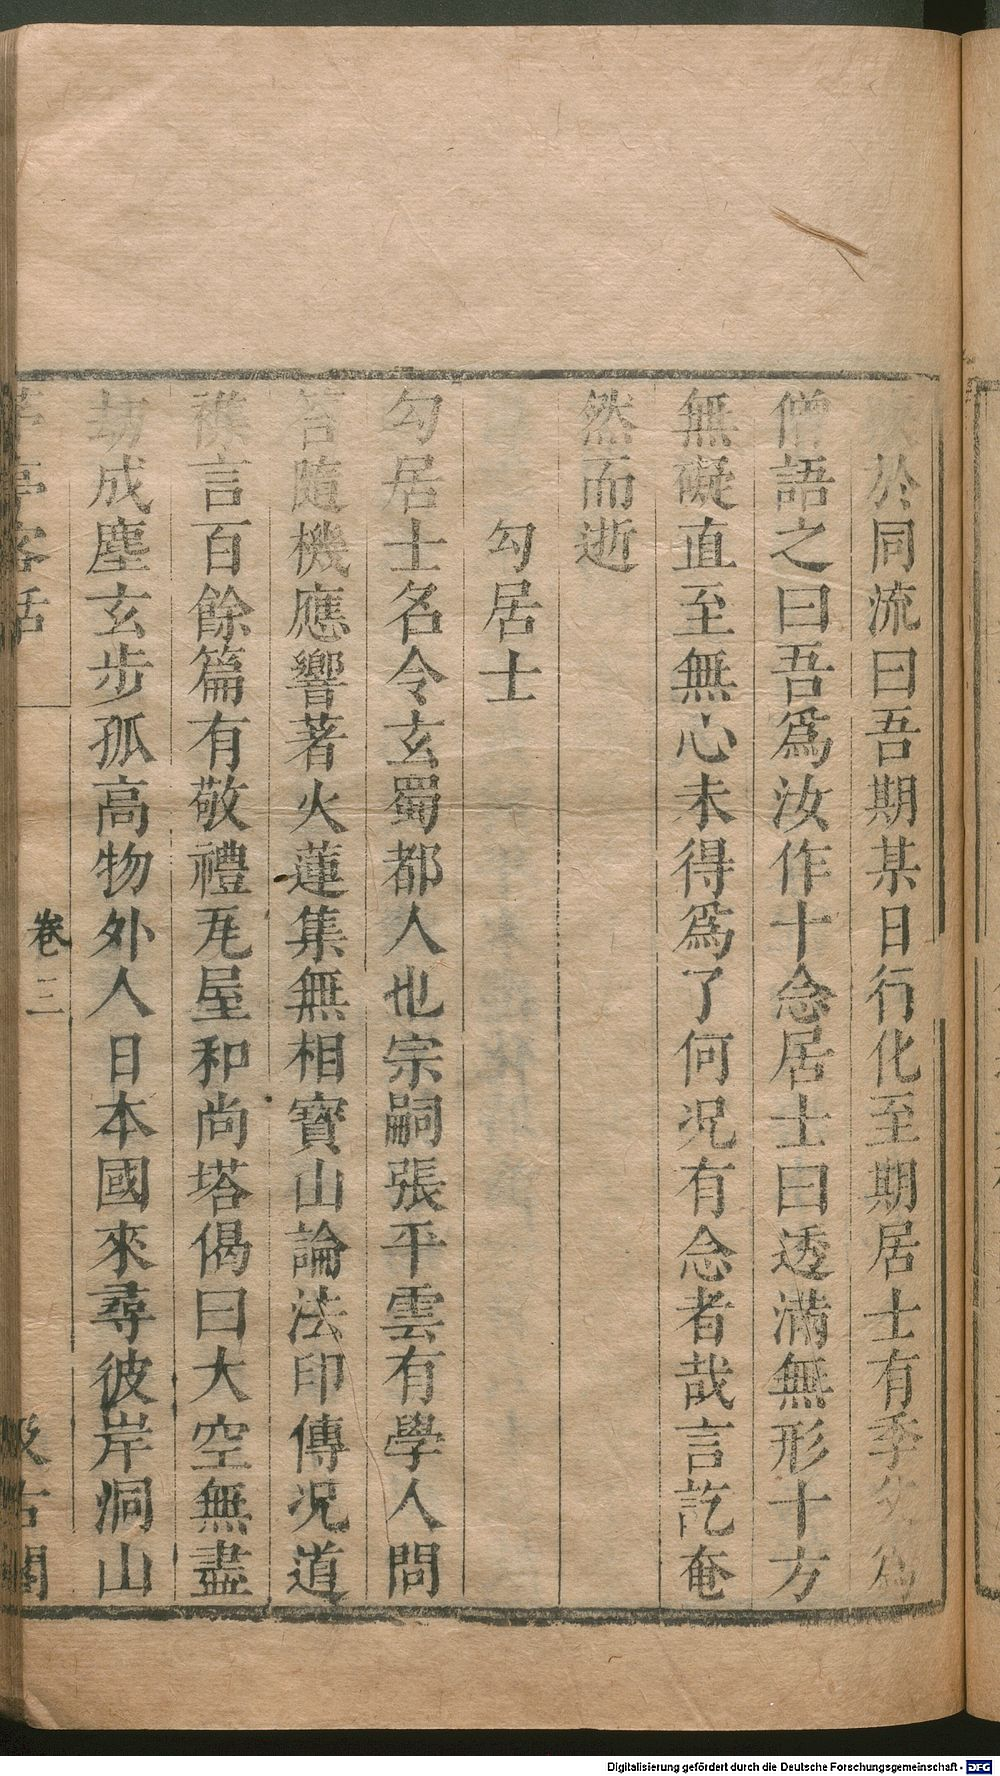 於同流曰吾期某日行化至期居士有季父爲
僧語之曰吾爲汝作十念居士曰透滿無形十方
無礙直至無心未得爲了何况有念者哉言訖奄
然而逝
勾居士
勾居士名令玄蜀都人也宗嗣張平雲有學人問
答隨機應響著火蓮集無相寶山論法印傳况道
雜言百餘篇有敬禮瓦屋和尚塔偈曰大空無盡
劫成塵玄步孤高物外人日本國來尋彼岸洞山
茅亭客話 卷三 汲古閣
Digitalisierung gefördert durch die Deutsche Forschungsgemeinschaft - DFG